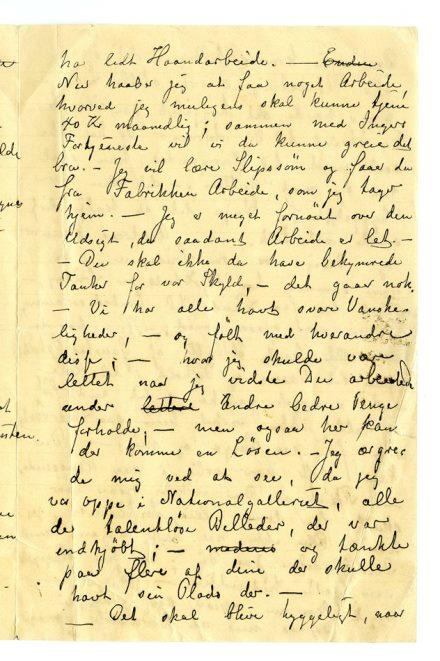 ha lidt Haandarbeide. — Endnu
Nu haaber jeg at faa noget Arbeide,
hvorved jeg muligens skal kunne tjene
40 Kr maanedlig; sammen med Ingers
Fortjeneste vil vi da kunne greie det
bra. — Jeg vil lære Slipssøm og faar da
fra Fabrikken Arbeide, som jeg tager
hjem. — Jeg er meget fornøiet over den
Udsigt, da saadant Arbeide er let. —
— Du skal ikke da have bekymrede
Tanker for vor Skyld, — det gaar nok.
— Vi har alle havt svære Vanske-
ligheder, — og følt med hverandre
disse; — hvor jeg skulde være
lettet naar jeg vidste Du arbeidede
under lettere Endre bedre Penge
forholde; — men ogsaa her kan
der komme en Løsen. — Jeg ærgre
de mig ved at see, da jeg
var oppe i Nationalgalleriet, alle
de talentløse Billeder, der var
indkjøbt; — og tænkte
paa flere af dine der skulle
havt sin Plads der. —
— Det skal blive hyggeligt, naar